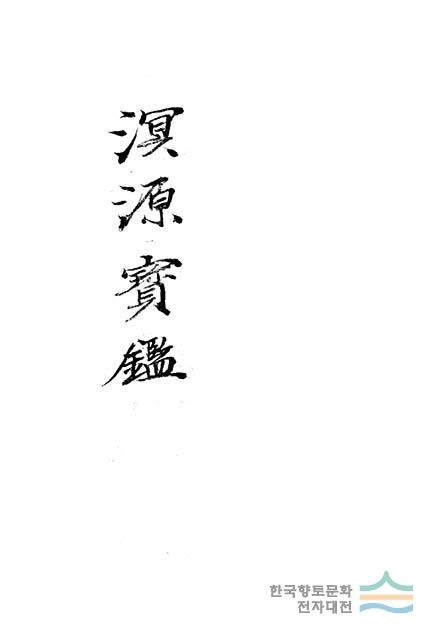 溟源寶鑑
한국향토문화
전자대전